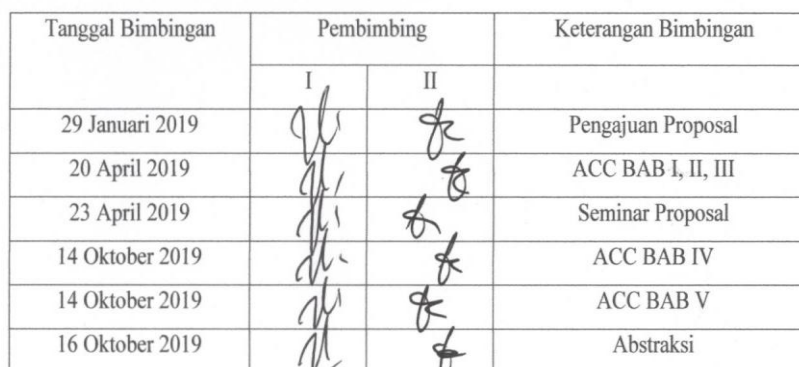 Tanggal Bimbingan Pembimbing Keterangan Bimbingan
I II
29 Januari 2019 Pengajuan Proposal
20 April 2019 ACC BAB I, II, III
23 April 2019 Seminar Proposal
14 Oktober 2019 ACC BAB IV
14 Oktober 2019 ACC BAB V
16 Oktober 2019 Abstraksi